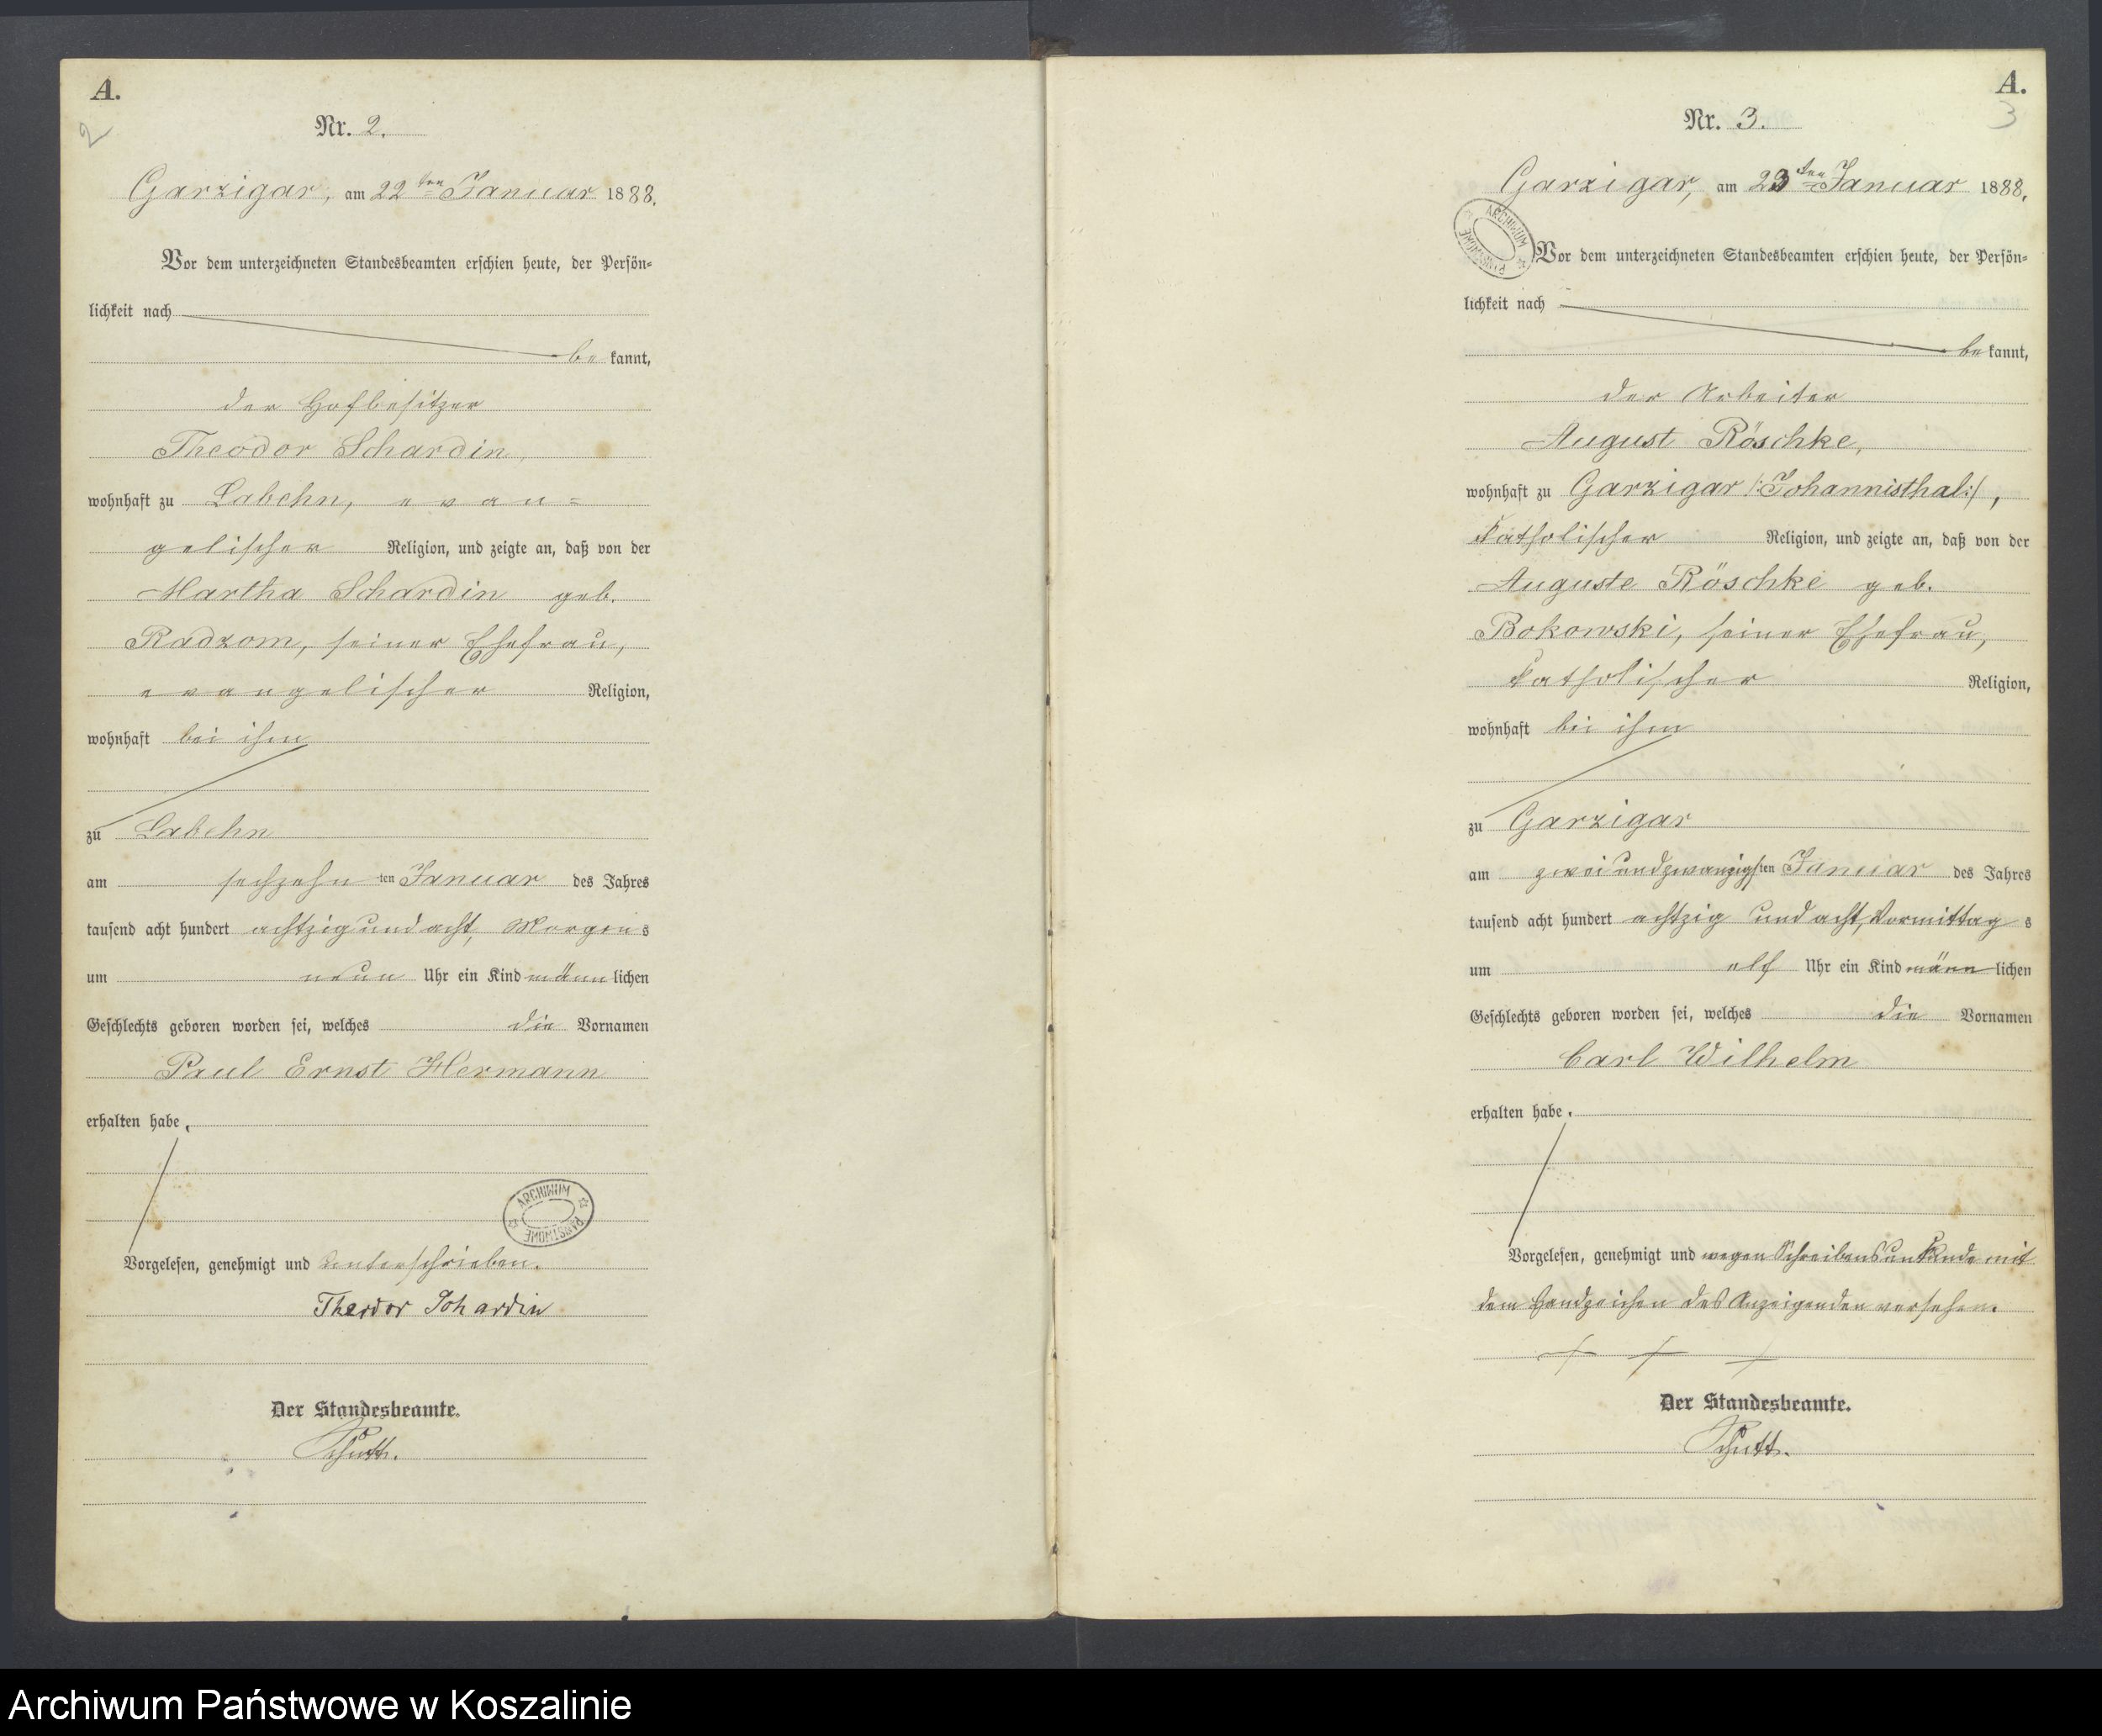 A.
2
Nr. 2.
Garzigar, am 22ten Januar 1888.
Vor dem unterzeichneten Standesbeamten erschien heute, der Persön-
lichkeit nach
be kannt,
der Hofbesitzer
Theodor Schardin,
wohnhaft zu Labehn, evan=
gelischer Religion, und zeigte an, daß von der
Martha Schardin geb.
Radzom, seiner Ehefrau,
evangelischer Religion,
wohnhaft bei ihm
zu Labehn
am sechzehn ten Januar des Jahres
tausend acht hundert achtzig und acht, Morgen s
um neun Uhr ein Kind männ lichen
Geschlechts geboren worden sei, welches die Vornamen
Paul Ernst Hermann
erhalten habe.
ARCHIWUM PAŃSTWOWE
Vorgelesen, genehmigt und unterschrieben.
Theodor Schardin
Der Standesbeamte.
A.
3
Nr. 3.
Garzigar, am 23ten Januar 1888.
ARCHIWUM PAŃSTWOWE
Vor dem unterzeichneten Standesbeamten erschien heute, der Persön-
lichkeit nach
be kannt,
der Arbeiter
August Röschke,
wohnhaft zu Garzigar /:Johannisthal:/,
katholischer Religion, und zeigte an, daß von der
Auguste Röschke geb.
Bokowski, seiner Ehefrau,
katholischer Religion,
wohnhaft bei ihm
zu Garzigar
am zwei und zwanzigs ten Januar des Jahres
tausend acht hundert achtzig und acht, Vormittag s
um elf Uhr ein Kind männ lichen
Geschlechts geboren worden sei, welches die Vornamen
Carl Wilhelm
erhalten habe.
Vorgelesen, genehmigt und wegen Schreibensunkunde mit
dem Handzeichen des Anzeigenden versehen.
+ + +
Der Standesbeamte.
Archiwum Państwowe w Koszalinie